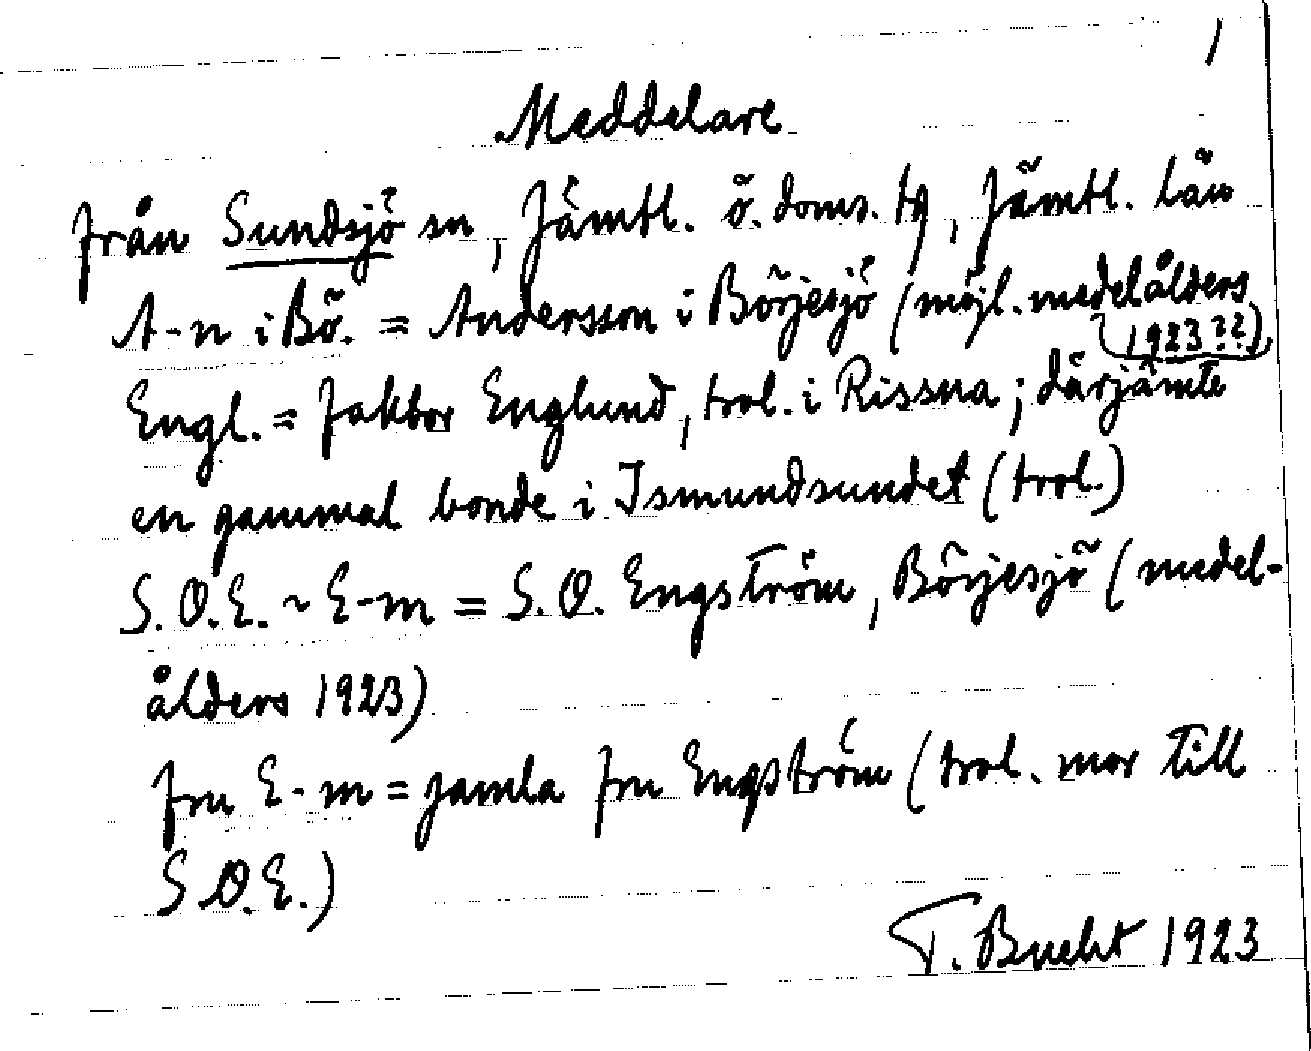 1
Meddelare
från Sundsjö sn, Jämtl. ö. doms. tg, Jämtl. län
A-n i Bö. = Andersson i Börjesjö (möjl. medelålders
1923??)
Engl. = faktor Englund, trol. i Rissna; därjämte
en gammal bonde i Ismundsundet (trol.)
S.O.E. ~ E-m = S.O. Engström, Börjesjö (medel-
ålders 1923)
fru E-m = gamla fru Engström (trol. mor till
S.O.E.)
T. Bucht 1923